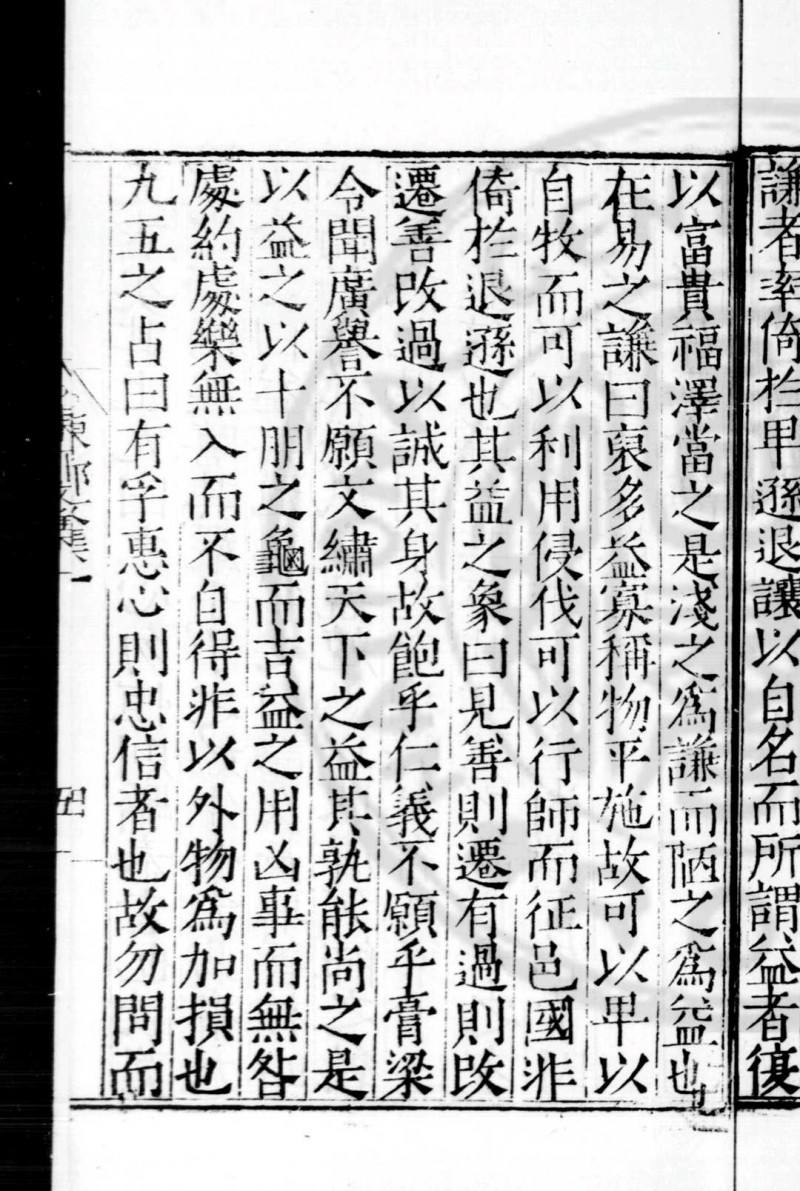 謙者率倚於卑遜退讓以自名而所謂益者復
以富貴福澤當之是淺之爲謙而陋之爲益也
在易之謙曰裒多益寡稱物平施故可以卑以
自牧而可以利用侵伐可以行師而征邑國非
倚於退遜也其益之象曰見善則遷有過則改
遷善改過以誠其身故飽乎仁義不願乎膏梁
令聞廣譽不願文繡天下之益其孰能尚之是
以益之以十朋之龜而吉益之用凶事而無咎
處約處樂無入而不自得非以外物爲加損也
九五之占曰有孚惠心則忠信者也故勿問而
東郭文集一
五